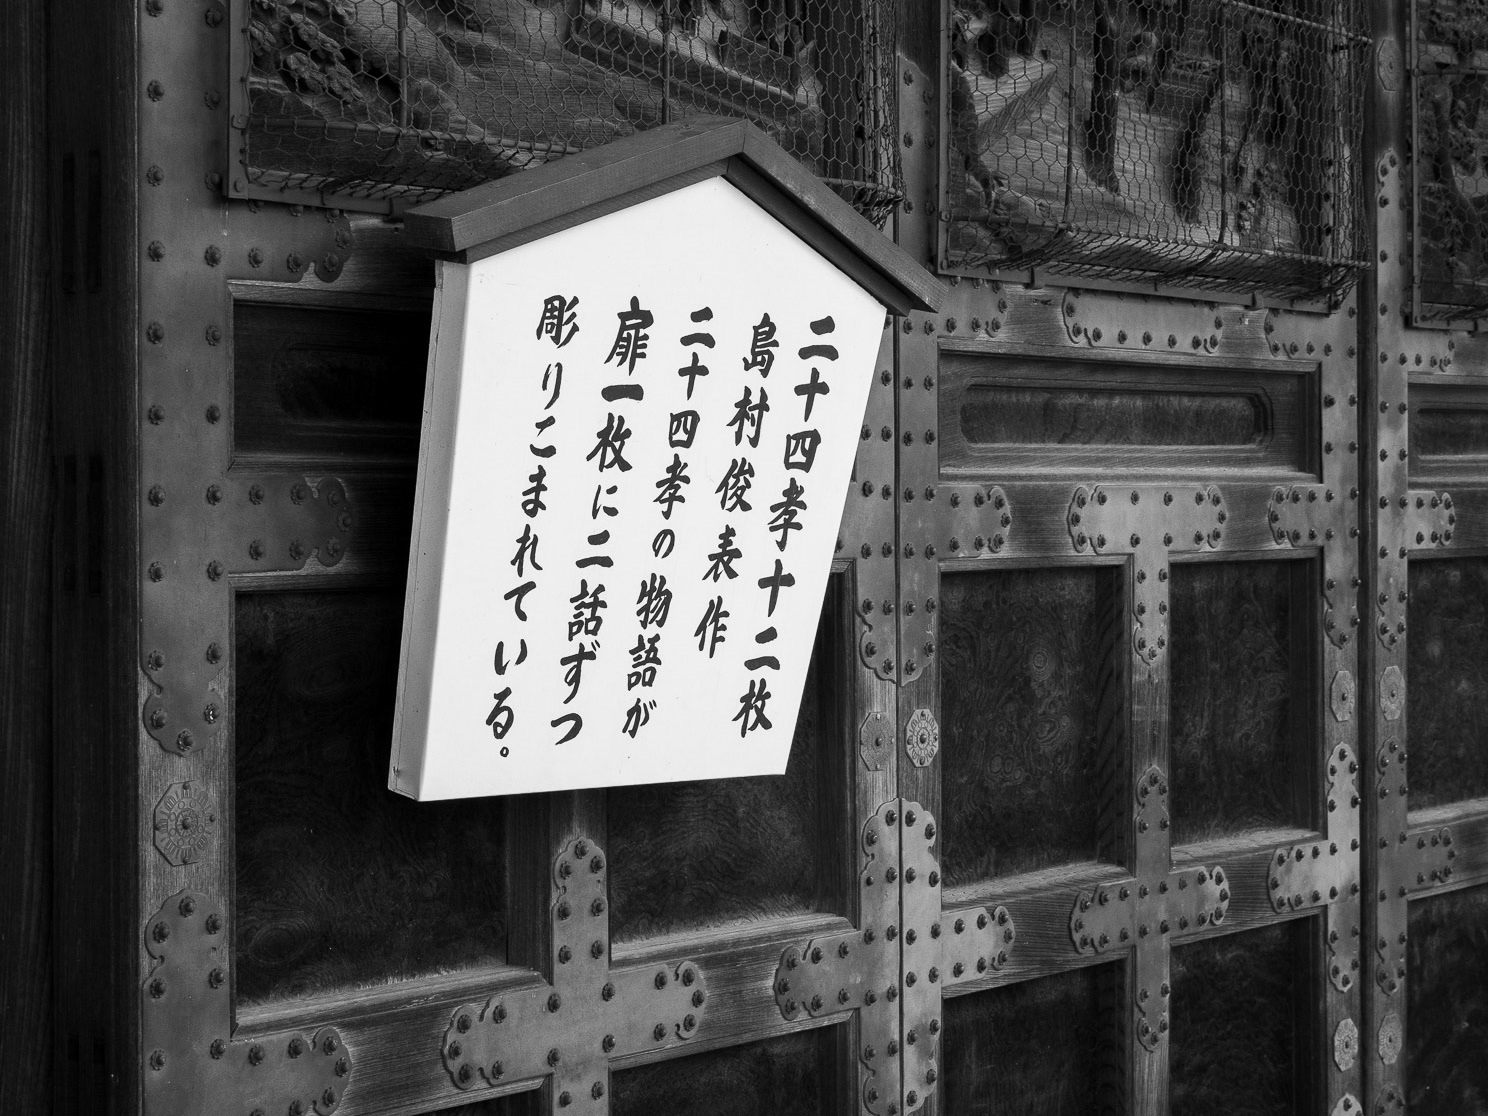 二十四孝十二枚
島村俊表作
二十四孝の物語が
扉一枚に二話ずつ
彫りこまれている。